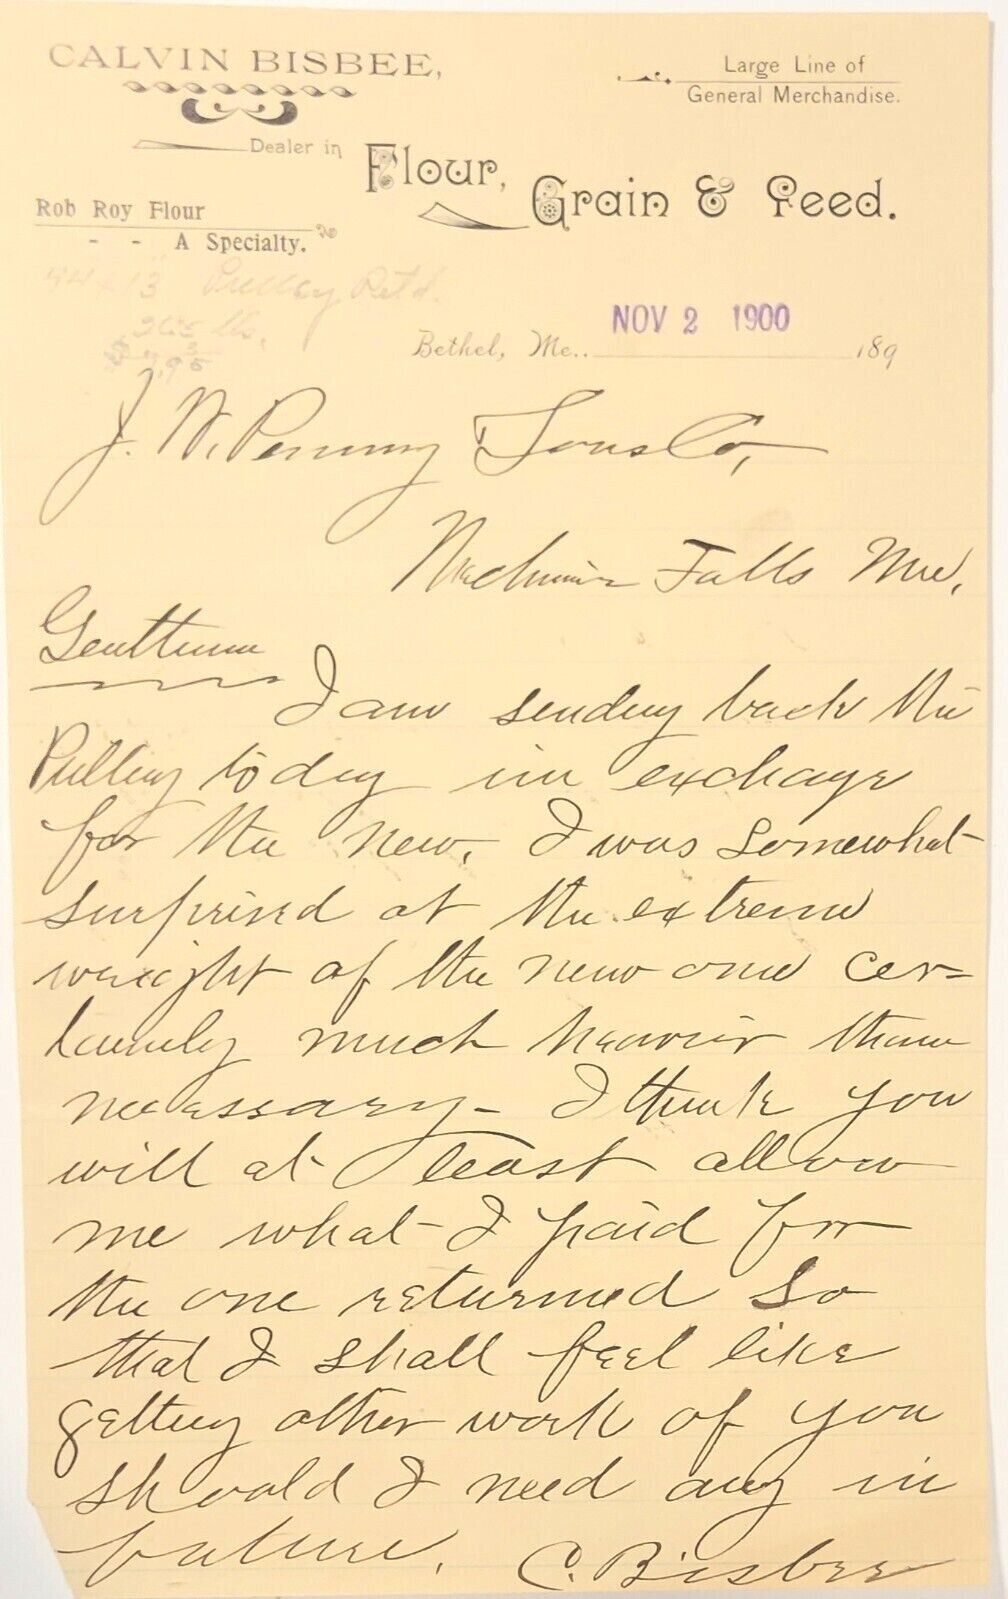 CALVIN BISBEE,
Large Line of
General Merchandise.
Dealer in Flour, Grain & Feed.
Rob Roy Flour
- - A Specialty.
44 x 13 Pulley Retd.
265 lbs.
7.95
NOV 2 1900
Bethel, Me. 189
J. W. Penney & Sons Co,
Mechanic Falls Me,
Gentlemen
I am sending back the
Pulley today in exchage
for the new. I was somewhat
surprised at the extreme
weight of the new one cer=
tainly much heavier than
necessary - I think you
will at least allow
me what I paid for
the one returned so
that I shall feel like
getting other work of you
should I need any in
future. C. Bisbee